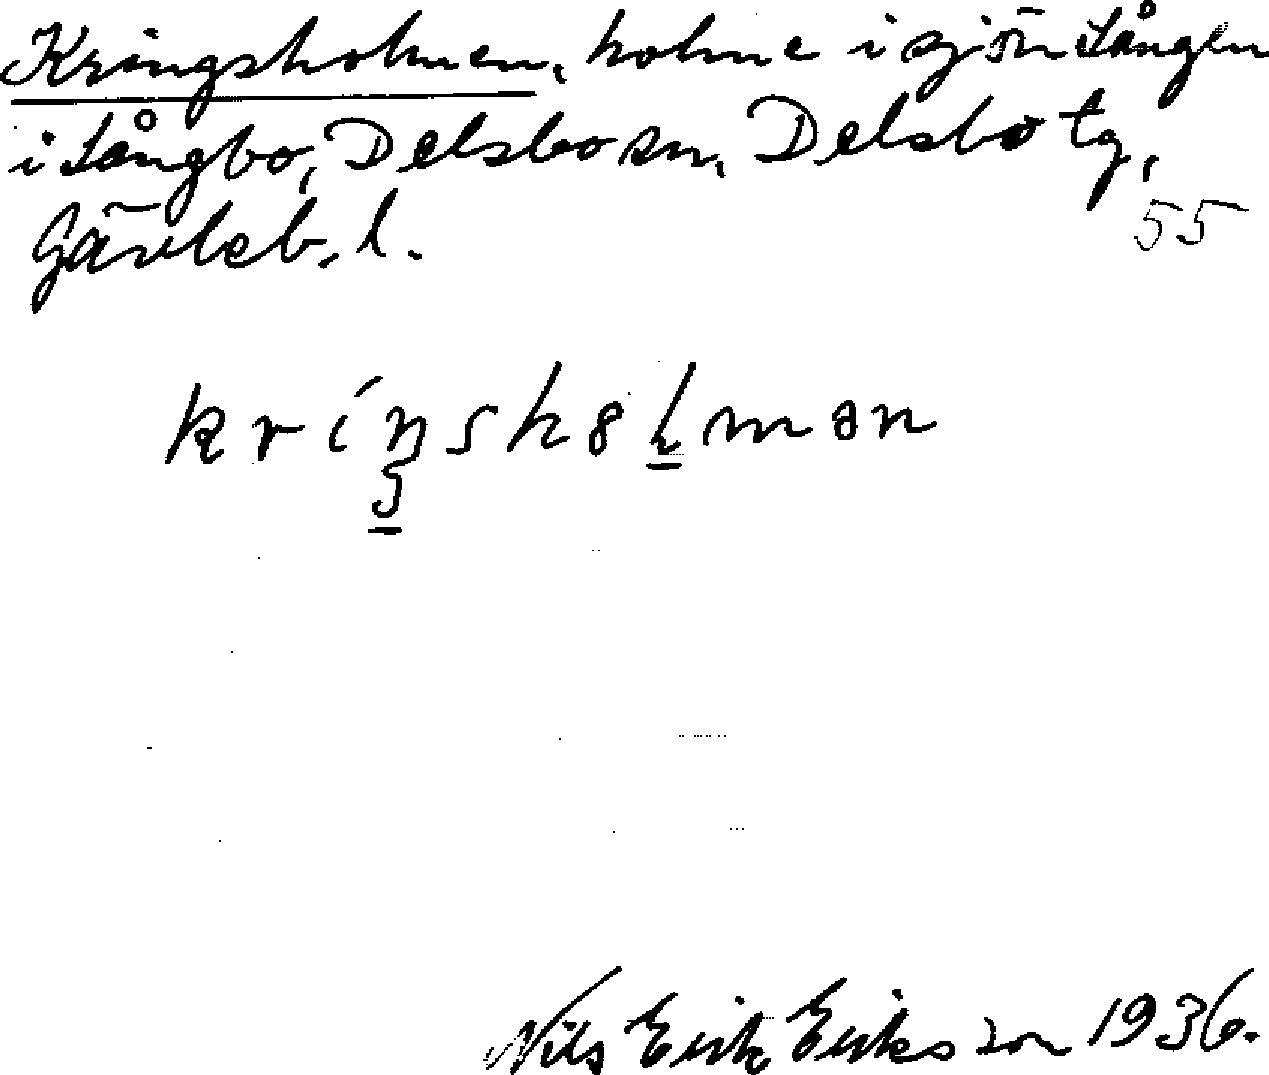 Kringsholmen, holme i sjön Lången
i Långbo, Delsbo sn, Delsbo tg,
Gävleb. l.
55
kríŋshɵlmən
Nils Erik Eriksson 1936.